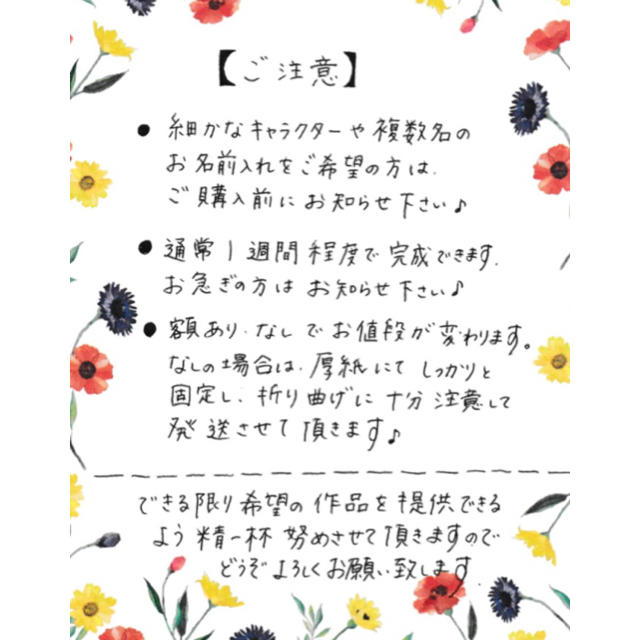 【ご注意】
● 細かなキャラクターや複数名の
お名前入れをご希望の方は、
ご購入前にお知らせ下さい♪
● 通常1週間程度で完成できます。
お急ぎの方はお知らせ下さい♪
● 額あり・なしでお値段が変わります。
なしの場合は、厚紙にてしっかりと
固定し、折り曲げに十分注意して
発送させて頂きます♪
できる限り希望の作品を提供できる
よう精一杯努めさせて頂きますので
どうぞよろしくお願い致します。